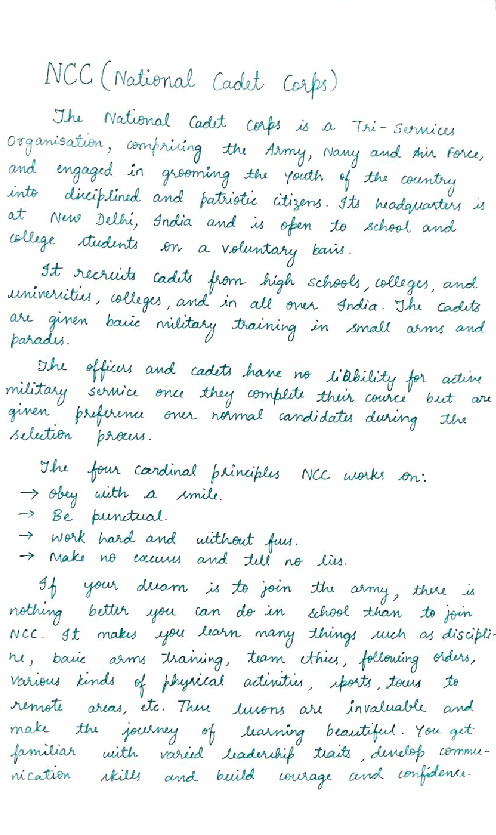 NCC (National Cadet Corps)
The National Cadet Corps is a Tri-Services
Organisation, comprising the Army, Navy and Air Force,
and engaged in grooming the youth of the country
into disciplined and patriotic citizens. Its headquarters is
at New Delhi, India and is open to school and
college students on a voluntary basis.
It recruits cadets from high schools, colleges, and
universities, colleges, and in all over India. The Cadets
are given basic military training in small arms and
parades.
The officers and cadets have no liability for active
military service once they complete their cource but are
given preference over normal candidates during the
selection process.
The four cardinal principles NCC works on:
→ Obey with a smile.
→ Be punctual.
→ Work hard and without fuss.
→ Make no excuses and tell no lies.
If your dream is to join the army, there is
nothing better you can do in school than to join
NCC. It makes you learn many things such as discipli-
ne, basic arms training, team ethics, following orders,
various kinds of physical activities, sports, tours to
remote areas, etc. These lessons are invaluable and
make the journey of learning beautiful. You get
familiar with varied leadership traits, develop commu-
nication skills and build courage and confidence.